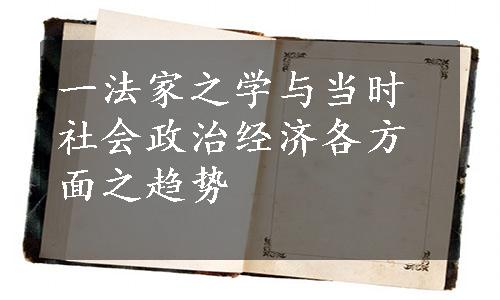 一法家之学与当时
社会政治经济各方
面之趋势